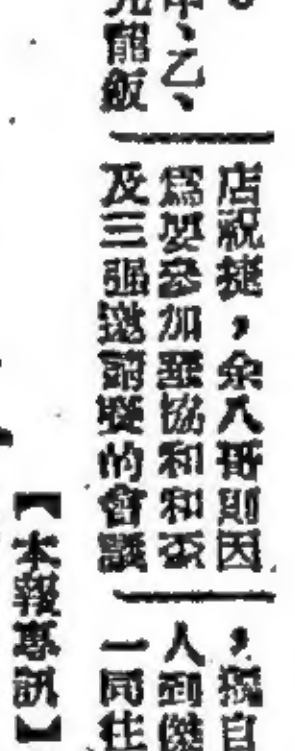 乙、
飯
店祝捷，余八哥則因
爲要參加協和和盃
及三强邀請賽的會議
自
人到傑
一同往
【本報專訊】